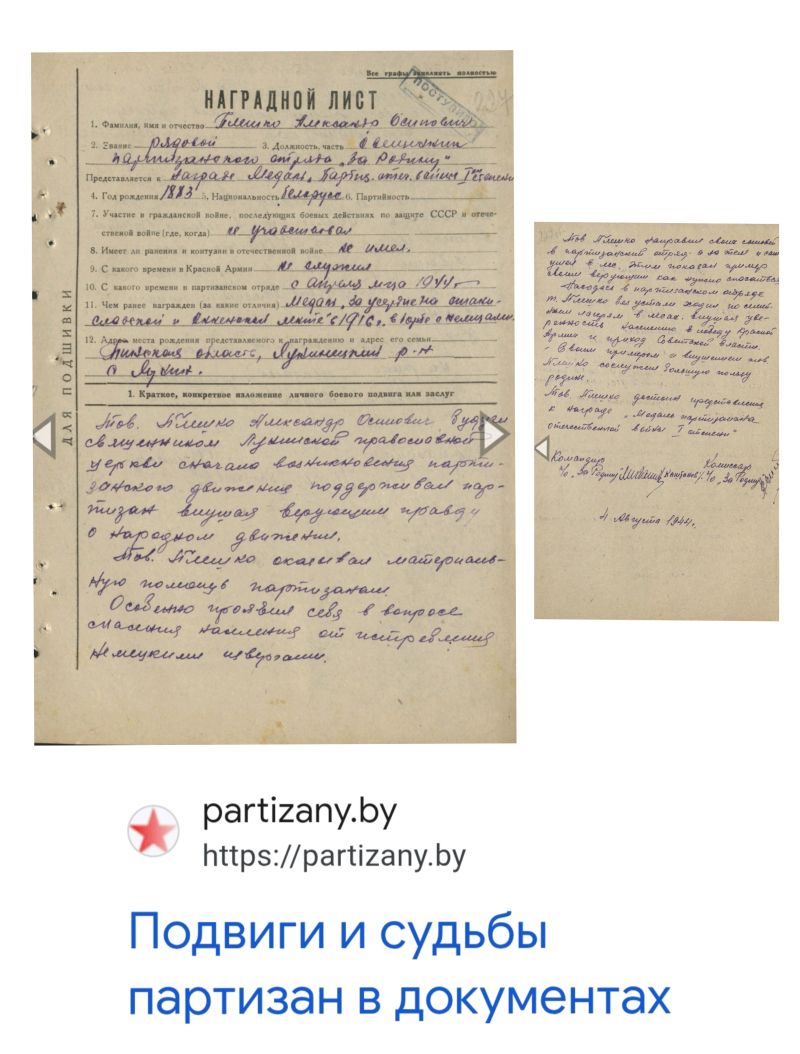 Все графы заполнять полностью
ПОСТУПИЛ
НАГРАДНОЙ ЛИСТ
1. Фамилия, имя и отчество Плешко Александр Осипович
2. Звание рядовой 3. Должность, часть Священник
партизанского отряда „За Родину"
Представляется к награде Медаль „Партиз. отеч. войны I степени
4. Год рождения 1883 5. Национальность белорус 6. Партийность
7. Участие в гражданской войне, последующих боевых действиях по защите СССР и отече-
ственной войне (где, когда) не участвовал
8. Имеет ли ранения и контузии в отечественной войне не имел.
9. С какого времени в Красной Армии не служил
10. С какого времени в партизанском отряде с апреля м-ца 1944 г.
11. Чем ранее награжден (за какие отличия) Медаль „За усердие на
и в 1916 г. в борьбе с немцами.
12. Адрес места рождения представляемого к награждению и адрес его семьи
Пинская область, Лунинецкий р-н
с Лунин.
ДЛЯ ПОДШИВКИ
1. Краткое, конкретное изложение личного боевого подвига или заслуг
Тов. Плешко Александр Осипович будучи
священником Лунинской православной
церкви сначала возникновения парти-
занского движения поддерживал пар-
тизан внушая верующим правду
о народном движении.
Тов. Плешко оказывал материаль-
ную помощь партизанам.
Особенно проявил себя в вопросе
спасения населения от истребления
немецкими извергами.
Тов Плешко направил своих сыновей
в партизанский отряд, а затем и сам
ушел в лес. Этим показал пример
своим верующим как нужно спасаться
Находясь в партизанском отряде
т. Плешко без устали ходил по
лагерям в лесах, внушая уве-
ренность населению в победу Красной
Армии и приход Советской власти.
Своим примером и внушением тов
Плешко сослужил большую пользу
родине.
Тов Плешко достоин представления
к награде „Медаль партизана
отечественной войны I степени"
Командир Комиссар
п/о „За Родину" п/о „За Родину"
4 Августа 1944 г.
partizany.by
https://partizany.by
Подвиги и судьбы
партизан в документах